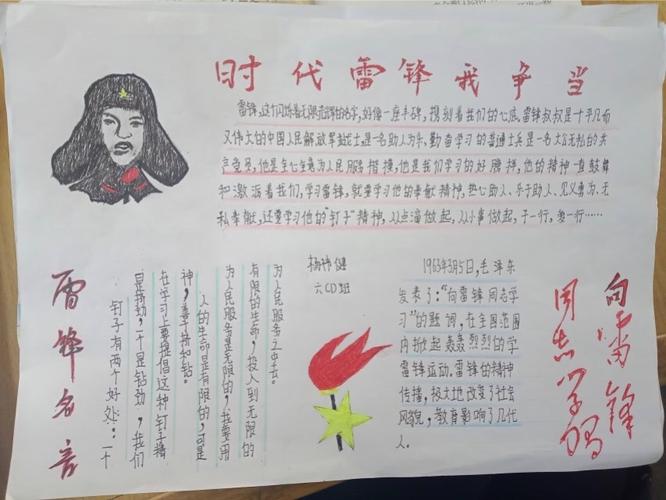 时代雷锋我争当
雷锋,这个闪烁着无限光辉的名字,好像一座丰碑,携刻着我们的心底,雷锋叔叔是个平凡而
又伟大的中国人民解放军战士,是一名助人为乐,勤奋学习的普通士兵是一名大公无私的共
产党员,他是全心全意为人民服务楷模,他是我们学习的好榜样,他的精神一直鼓舞
和激派着我们,学习雷锋,就要学习他的奉献精神,热心助人、乐于助人、见义勇为、无
私奉献,还要学习他的"钉子"精神,从点滴做起,从小事做起,干一行,爱一行……
雷锋名言
钉子有两个好处:一个
是挤劲,一个是钻劲,我们
在学习上要提倡这种钉子精
神,善于挤和钻。
人的生命是有限的,可是
为人民服务是无限的,我要用
有限的生命,投入到无限的
为人民服务之中去。
杨祎健
六(2)班
1963年3月5日,毛泽东
发表了:"向雷锋同志学
习"的题词,在全国范围
内掀起轰轰烈烈的学
雷锋运动.雷锋的精神
传播,极大地改变了社会
风貌,教育影响了几代
人.
向雷锋
同志学习